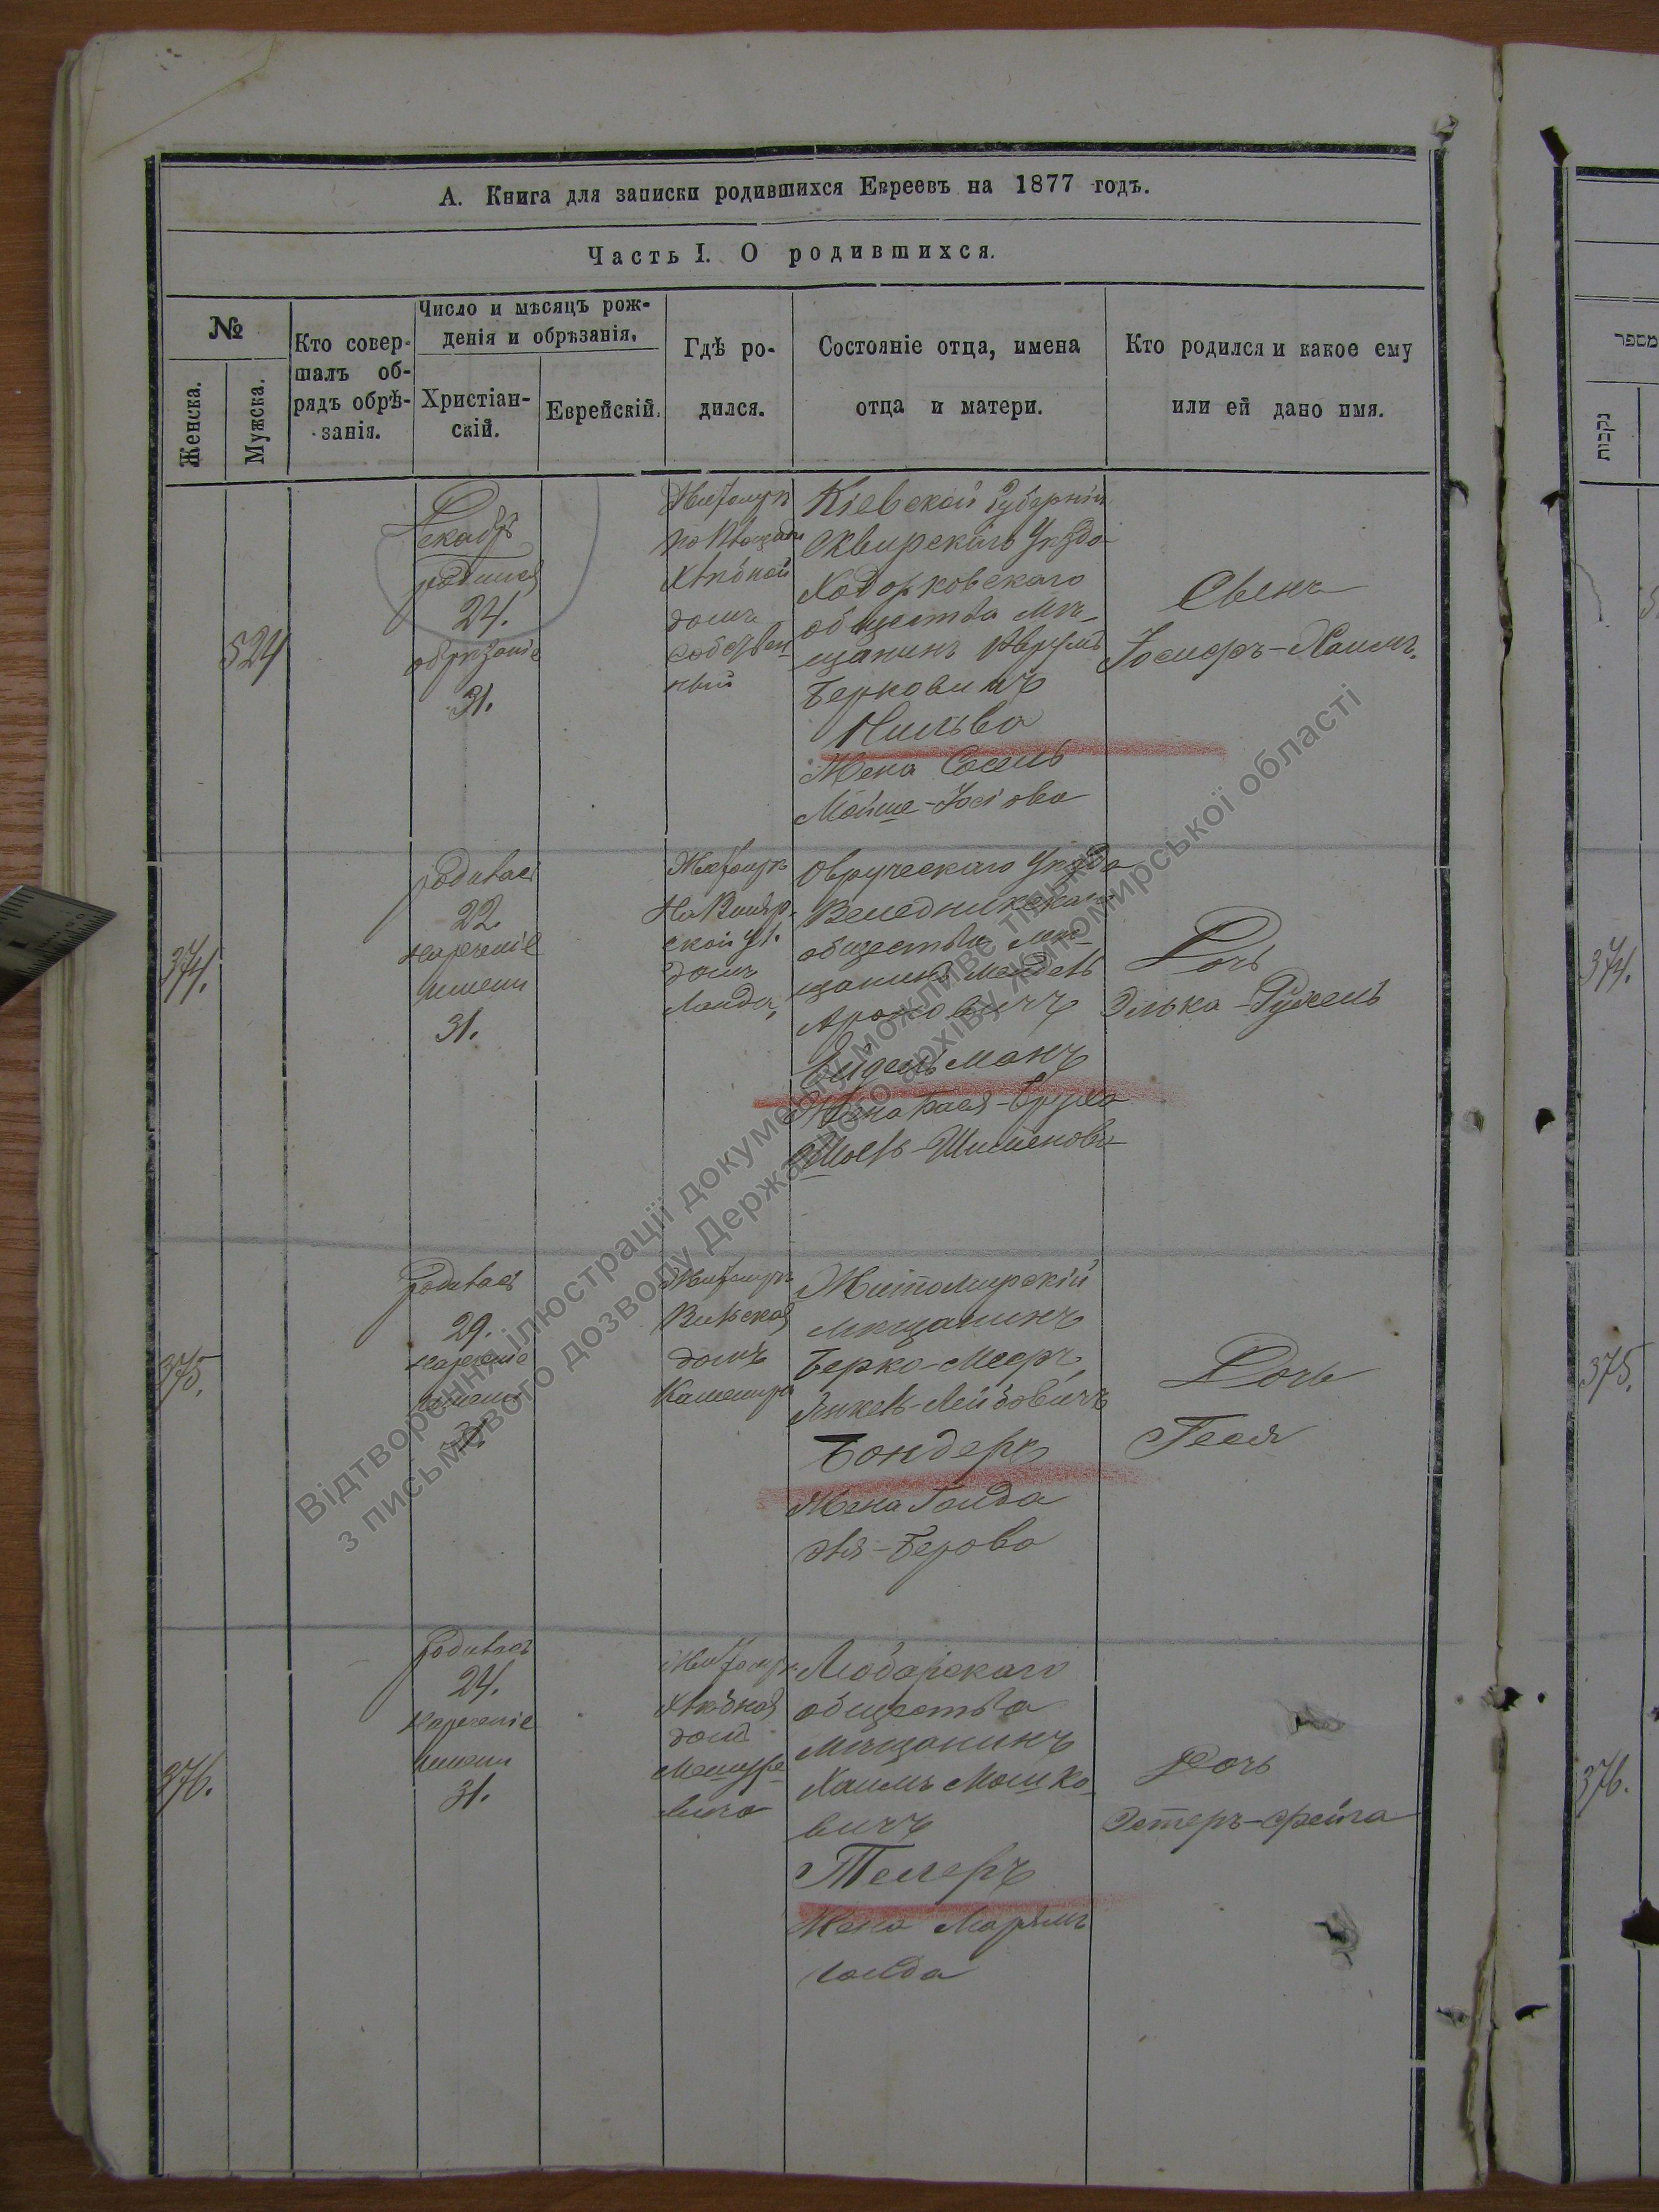 А. Книга для записки родившихся Евреевъ на 1877 годъ.
Часть I. О родившихся.
№
Женска.
Мужска.
Кто совер-
шалъ об-
рядъ обрѣ-
занія.
Число и мѣсяцъ рож-
денія и обрѣзанія.
Христіан-
скій.
Еврейскій.
Гдѣ ро-
дился.
Состояніе отца, имена
отца и матери.
Кто родился и какое ему
или ей дано имя.
524
Декабр
родился
24.
обрѣзаніе
31.
Житомир
домъ
собствен-
ный
Кіевской Губерніи
Сквирскаго Уѣзда
Ходорковскаго
общества Мѣ-
щанинъ Аврумъ
Берковичъ
Жена Сосель
Мойше-Хаімъ
Сынъ
Іосифъ-Хаимъ.
374.
родилась
22.
нареченіе
имени
31.
Житомиръ
ской ул.
домъ
Ланда
Овручскаго Уѣзда
Веледникскаго
общества Мѣ-
щанинъ Мендель
Ароновичъ
Ейдельманъ
Жена Бася-Бруха
Дочь
Элька-Рухель
375.
родилась
29.
нареченіе
имени
31.
Житомиръ
Вильская
домъ
Житомирскій
мѣщанинъ
Берко-Мееръ
Янкель-Лейбовичъ
Бондеръ
Жена Голда
Берова
Дочь
Геся
376.
родилась
24.
нареченіе
имени
31.
Житомир
Хлѣбная
домъ
Любарскаго
общества
Мѣщанинъ
Хаимъ Мошко-
вичъ
Телеръ
Жена Марьямъ
Голда
Дочь
Эстеръ-Фейга
מספר
נקבות
374.
375.
376.
Відтворення ілюстрації документу можливе тільки
з письмового дозволу Державного архіву Житомирської області